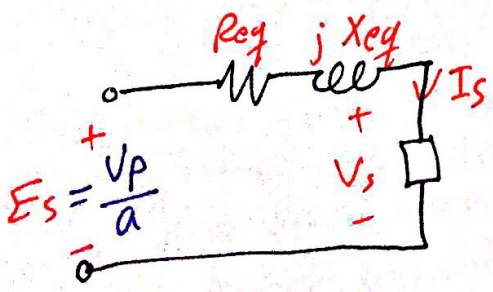 Req j Xeq
Is
+
+
Vs
Es = Vp/a
-
-